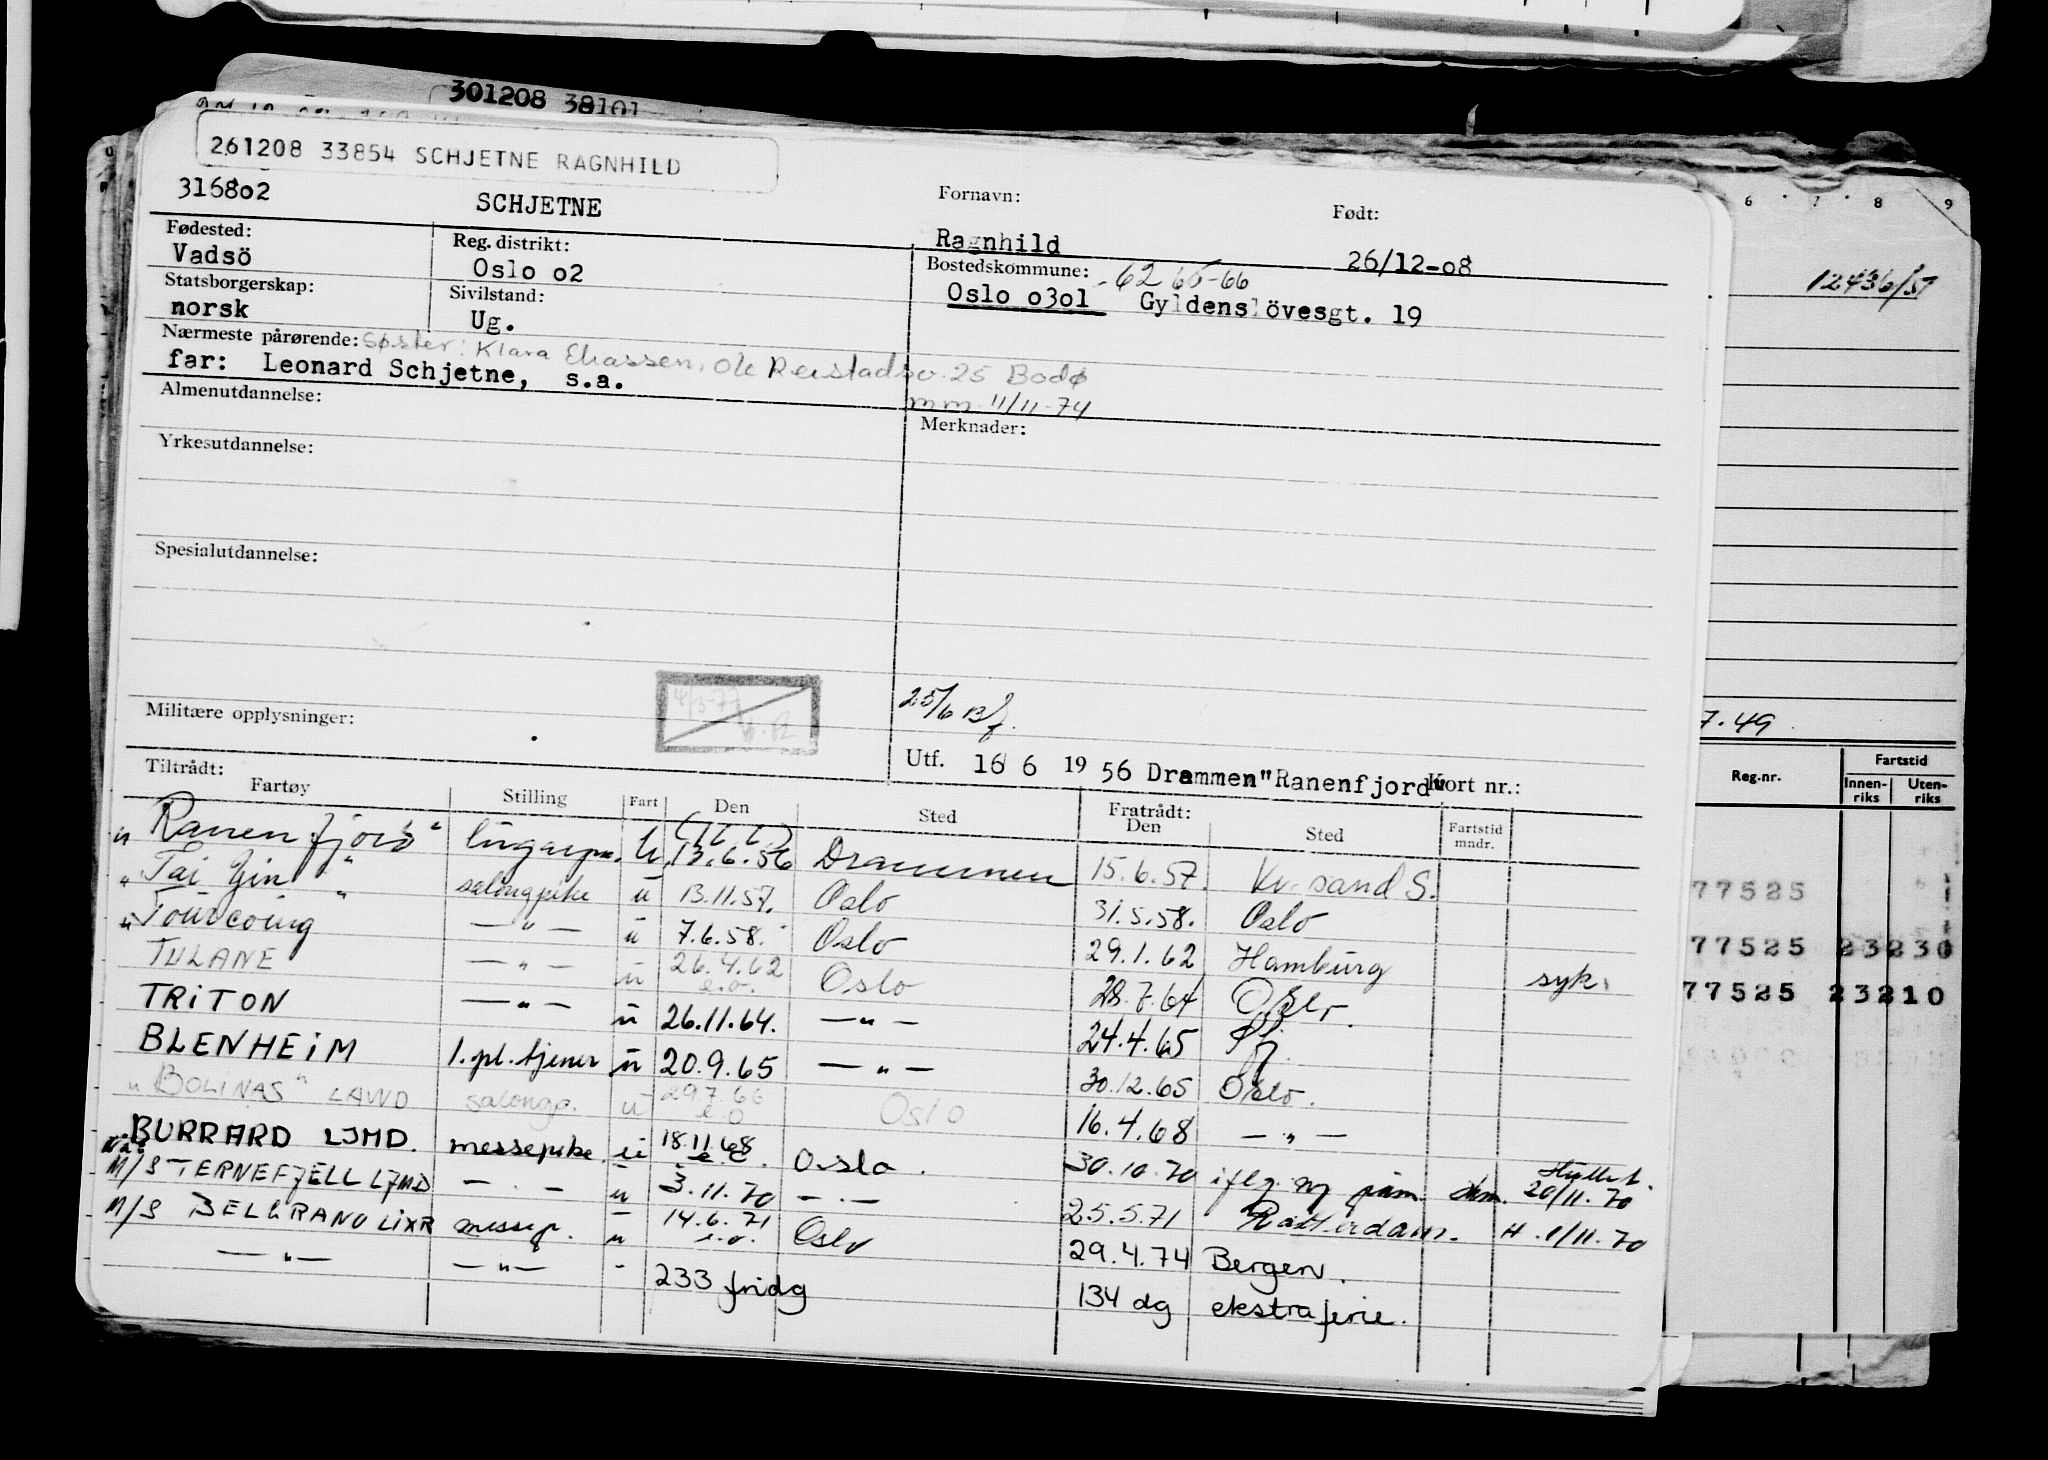 301208 38101
261208 33854 SCHJETNE RAGNHILD
316802 SCHJETNE Fornavn: Ragnhild Født: 26/12-08
Fødested: Vadsö Reg. distrikt: Oslo o2 Bostedskommune: Oslo o3o1 Gyldenslövesgt. 19
62 65-66
Statsborgerskap: norsk Sivilstand: Ug.
Nærmeste pårørende: Søster: Klara Eliassen, Ole Reistadsv. 25 Bodø
far: Leonard Schjetne, s.a.
m.m. 11/11-74
Almenutdannelse:
Merknader:
Yrkesutdannelse:
Spesialutdannelse:
4/3-77
25/6 Bf.
Militære opplysninger:
Utf. 16 6 19 56 Drammen "Ranenfjord" Kort nr.:
Tiltrådt: Fratrådt:
Fartøy Stilling Fart Den Sted Den Sted Fartstid mndr.
"Ranenfjord" lugarpi. u (16.6) 13.6.56 Drammen 15.6.57. Kr.sand S.
"Tai Yin" salongpike u 13.11.57. Oslo 31.5.58. Oslo
"Tourcoing" — " — u 7.6.58. Oslo 29.1.62 Hamburg syk.
TULANE — " — u 26.4.62 e.o. Oslo 28.7.64 Oslo.
TRITON — " — u 26.11.64. — " — 24.4.65 Pf.
BLENHEIM 1.pl.tjener u 20.9.65 — " — 30.12.65 Oslo.
"BOLINAS" LAWD salongp. u 29.7.66 e.o Oslo 16.4.68 — " —
BURRARD LJMD. messepike u 18.11.68 e.o. Oslo. 30.10.70 iflg. ny påm. Hyllest. 20/11.70
M/S TERNEFJELL LJMD — " — u 3.11.70 — " — 25.5.71 Rotterdam. H. 1/11.70
M/S BELGRANO LIXR messep. u 14.6.71 e.o. Oslo 29.4.74 Bergen.
— " — — " — - 233 fridg 134 dg ekstraferie.
6 7 8 9
12436/57
7.49
Reg.nr. Fartstid
Innen-riks Uten-riks
77525
77525 23230
77525 23210